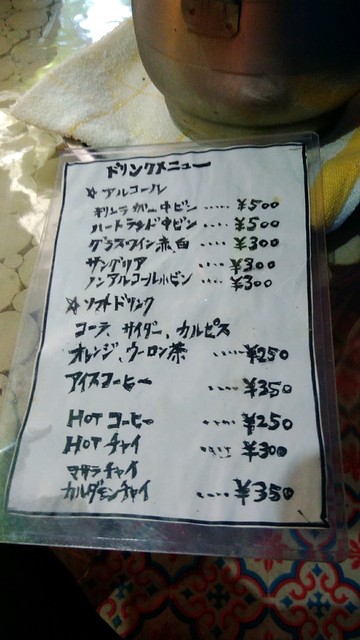 ドリンクメニュー
☆アルコール
キリンラガー中ビン ‥‥‥ ¥500
ハートランド中ビン ‥‥‥ ¥500
グラスワイン赤、白 ‥‥ ¥300
サングリア ‥‥ ¥300
ノンアルコール小ビン ‥‥ ¥300
☆ソフトドリンク
コーラ、サイダー、カルピス
オレンジ、ウーロン茶 ‥‥‥ ¥250
アイスコーヒー ‥‥ ¥350
HOT コーヒー ‥‥ ¥250
HOT チャイ ‥‥ ¥300
マサラチャイ
カルダモンチャイ ‥‥ ¥350